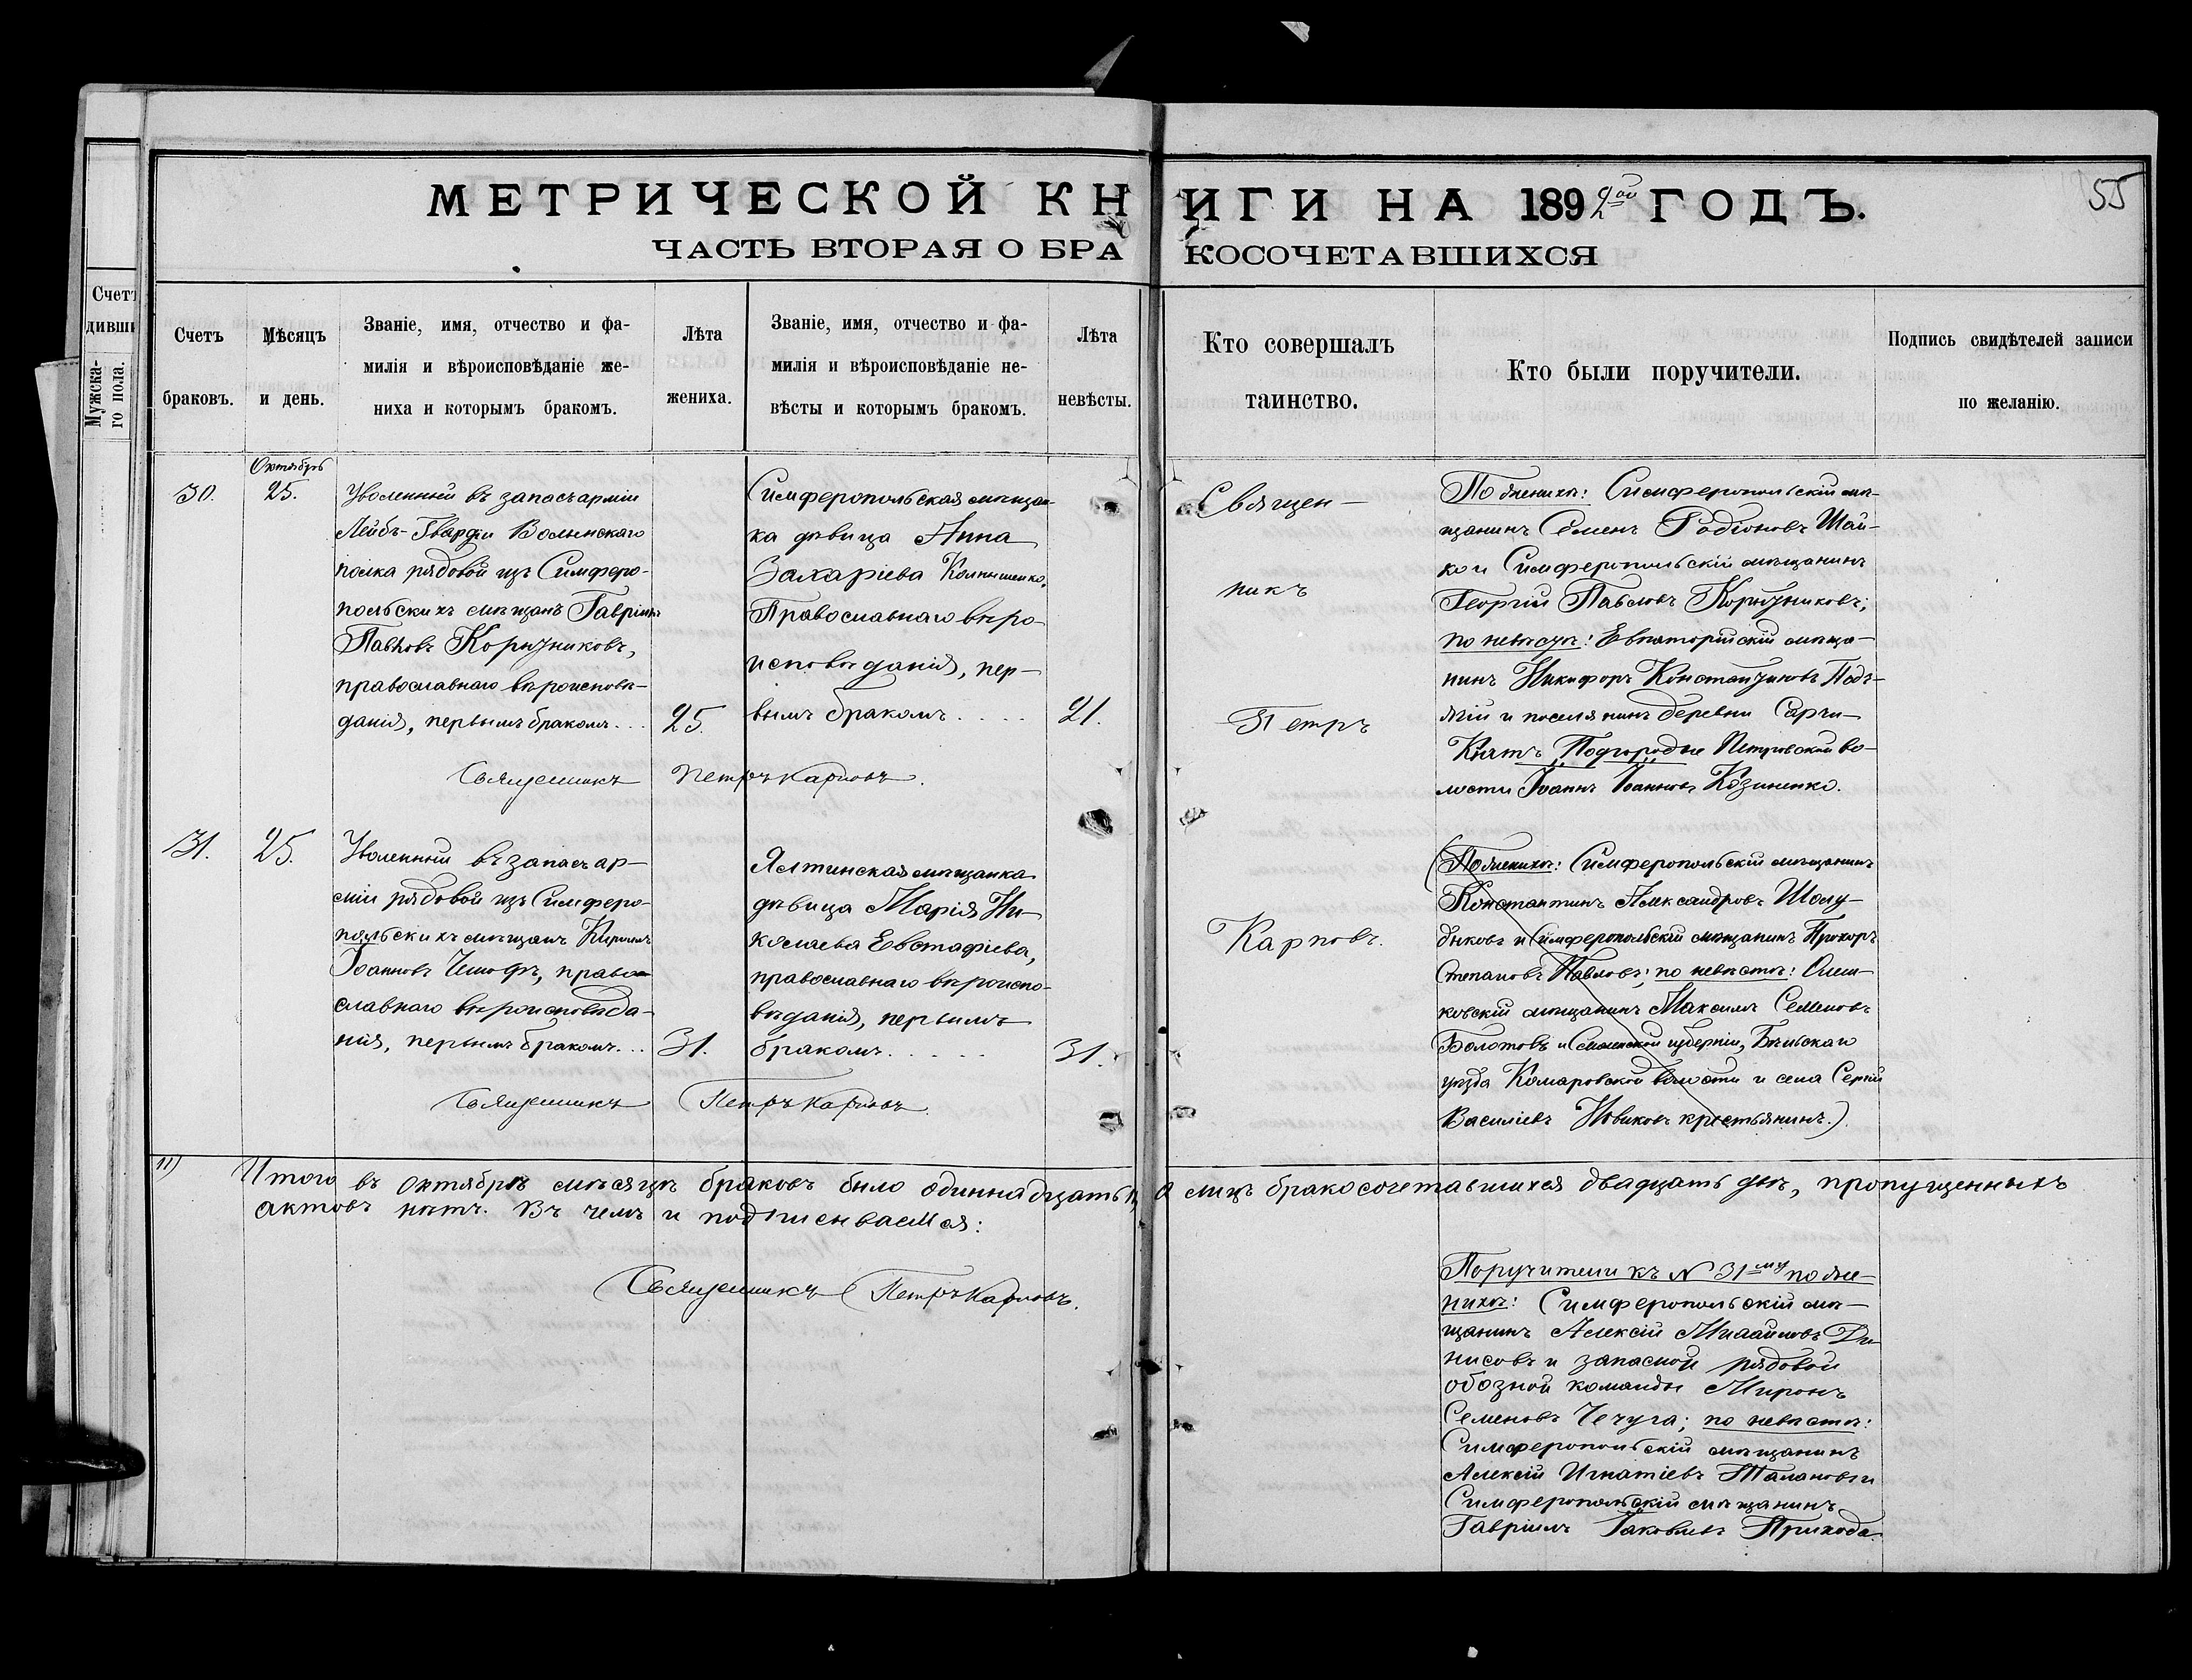 МЕТРИЧЕСКОЙ КНИГИ НА 1892ой ГОДЪ.
55
ЧАСТЬ ВТОРАЯ О БРАКОСОЧЕТАВШИХСЯ
Счет
дивши
Мужска-
го пола.
Счетъ
браковъ.
Мѣсяцъ
и день.
Званіе, имя, отчество и фа-
милія и вѣроисповѣданіе же-
ниха и которымъ бракомъ.
Лѣта
жениха.
Званіе, имя, отчество и фа-
милія и вѣроисповѣданіе не-
вѣсты и которымъ бракомъ.
Лѣта
невѣсты.
Кто совершалъ
таинство.
Кто были поручители.
Подпись свидѣтелей записи
по желанію.
30.
Октябрь
25.
Уволенный въ запасъ арміи
Лейбъ-Гвардіи Волынскаго
полка рядовой изъ Симферо-
польскихъ мѣщанъ Гавріилъ
Павловъ Корнузниковъ,
православнаго вѣроисповѣ-
данія, первымъ бракомъ...
25.
Симферопольская мѣщан-
ка дѣвица Анна
Захаріева
Православнаго вѣро-
исповѣданія, пер-
вымъ бракомъ....
21.
Священ-
никъ
Петръ
Карповъ.
По женихѣ: Симферопольскій мѣ-
щанинъ Семенъ Родіоновъ Шай-
ко и Симферопольскій мѣщанинъ
Георгій Павловъ Корнузниковъ;
по невѣстѣ: Евпаторійскій мѣща-
нинъ Никифоръ Константиновъ
и поселянинъ деревни Сарчи-
Кіятъ, Подгородне Петровской во-
лости Іоаннъ Іоанновъ Козиненко.
Священникъ Петръ Карповъ.
31.
25.
Уволенный въ запасъ ар-
міи рядовой изъ Симферо-
польскихъ мѣщанъ Кириллъ
Іоанновъ право-
славнаго вѣроисповѣда-
нія, первымъ бракомъ...
31.
Ялтинская мѣщанка
дѣвица Марія Ни-
колаева Евстафіева,
православнаго вѣроиспо-
вѣданія, первымъ
бракомъ.....
31.
(По женихѣ: Симферопольскій мѣщанинъ
Константинъ Александровъ Шолу-
дьковъ и Симферопольскій мѣщанинъ Прохоръ
Степановъ Павловъ; по невѣстѣ: Олеш-
ковскій мѣщанинъ Максимъ Семеновъ
Болотовъ и Смоленской губерніи, Бѣльскаго
уѣзда Комаровской волости и села Сергій
Василіевъ Новиковъ крестьянинъ.)
Священникъ Петръ Карповъ.
11)
Итого въ октябрѣ мѣсяцѣ браковъ было одиннадцать, а лицъ бракосочетавшихся двадцать два, пропущенныхъ
актовъ нѣтъ. Въ чемъ и подписываемся:
Священникъ Петръ Карповъ.
Поручители къ № 31му по же-
нихѣ: Симферопольскій мѣ-
щанинъ Алексій Михайловъ Де-
нисовъ и запасной рядовой
обозной команды Миронъ
Семеновъ Чечуга; по невѣстѣ:
Симферопольскій мѣщанинъ
Алексій Игнатіевъ Талановъ и
Симферопольскій мѣщанинъ
Гавріилъ Іаковлевъ Приходa.